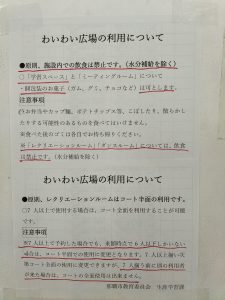 わいわい広場の利用について
●原則、施設内での飲食は禁止です。（水分補給を除く）
○「学習スペース」と「ミーティングルーム」について
・個包装のお菓子（ガム、グミ、チョコなど）は可とします。
注意事項
お弁当やカップ麺、ポテトチップス等、こぼしたり、散らかし
たりする可能性のあるものを食べてはいけません。
※食べた後のゴミは各自でお持ち帰りください。
※「レクリエーションルーム」「ダンスルーム」については、飲食
は禁止です。（水分補給を除く）
わいわい広場の利用について
●原則、レクリエーションルームはコート半面の利用です。
○7人以上で使用する場合は、コート全面を利用することが可能
です。
注意事項
※7人以上で予約した場合でも、来館時点で6人以下しかいない
場合は、コート半面での使用に変更となります。7人以上揃い次
第コート全面の使用に変更できますが、7人揃う前に別の利用者
が来た場合は、コートの全面使用は出来ません。
那珂市教育委員会　生涯学習課